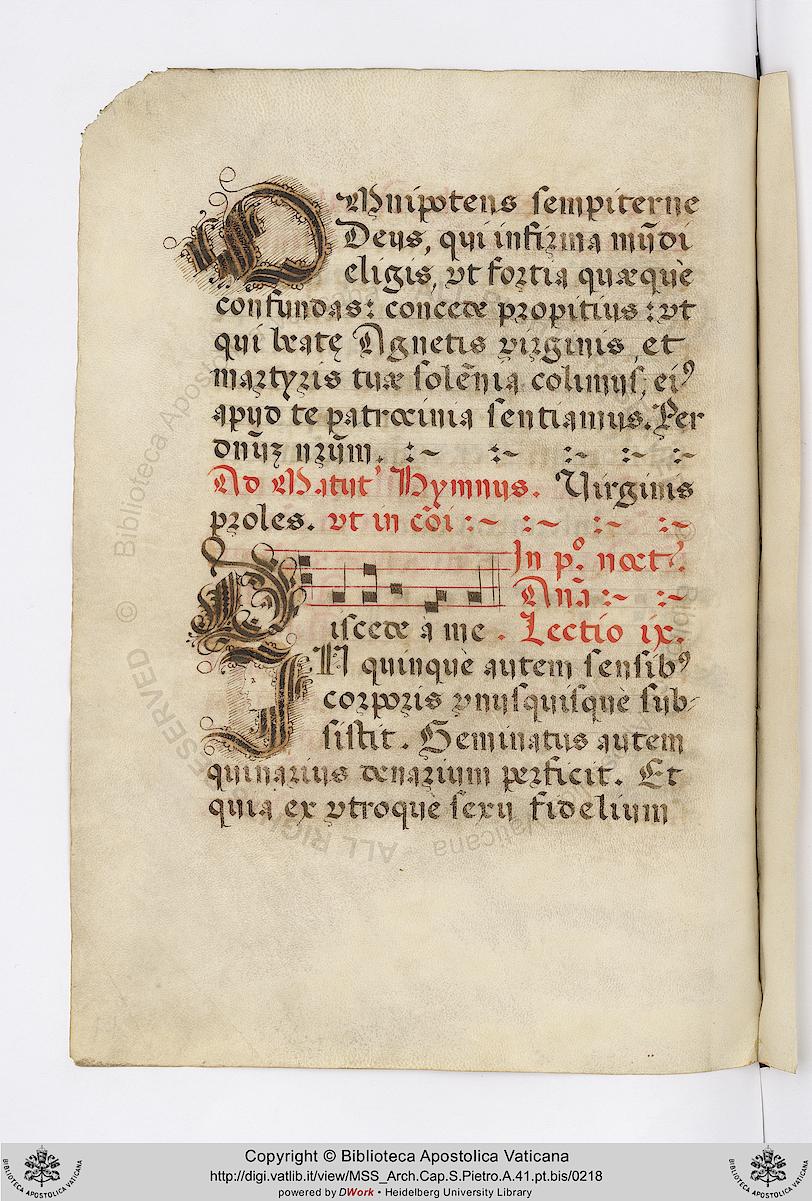 Omnipotens sempiterne
Deus, qui infirma mũdi
eligis, vt fortia quæquè
confundas: concede propitius: vt
qui beatę Agnetis virginis, et
martyris tuæ solẽnia colimus, ei⁹
apud te patrocinia sentiamus. Per
dnũꝫ nr̃um. :~ :~ :~ :~ :~
Ad Matut' Hymnus. Virginis
proles. vt in cõi :~ :~ :~ :~
In pº. noct'.
Anã :~ :~
Discede à me. Lectio ix.
IN quinque autem sensib⁹
corporis vnusquisquè sub-
sistit. Seminatus autem
quinarius denarium perficit. Et
quia ex vtroquè sexu fidelium
© Biblioteca Apostolica Vaticana ALL RIGHTS RESERVED
Copyright © Biblioteca Apostolica Vaticana
http://digi.vatlib.it/view/MSS_Arch.Cap.S.Pietro.A.41.pt.bis/0218
powered by DWork • Heidelberg University Library
BIBLIOTECA APOSTOLICA VATICANA
BIBLIOTECA APOSTOLICA VATICANA